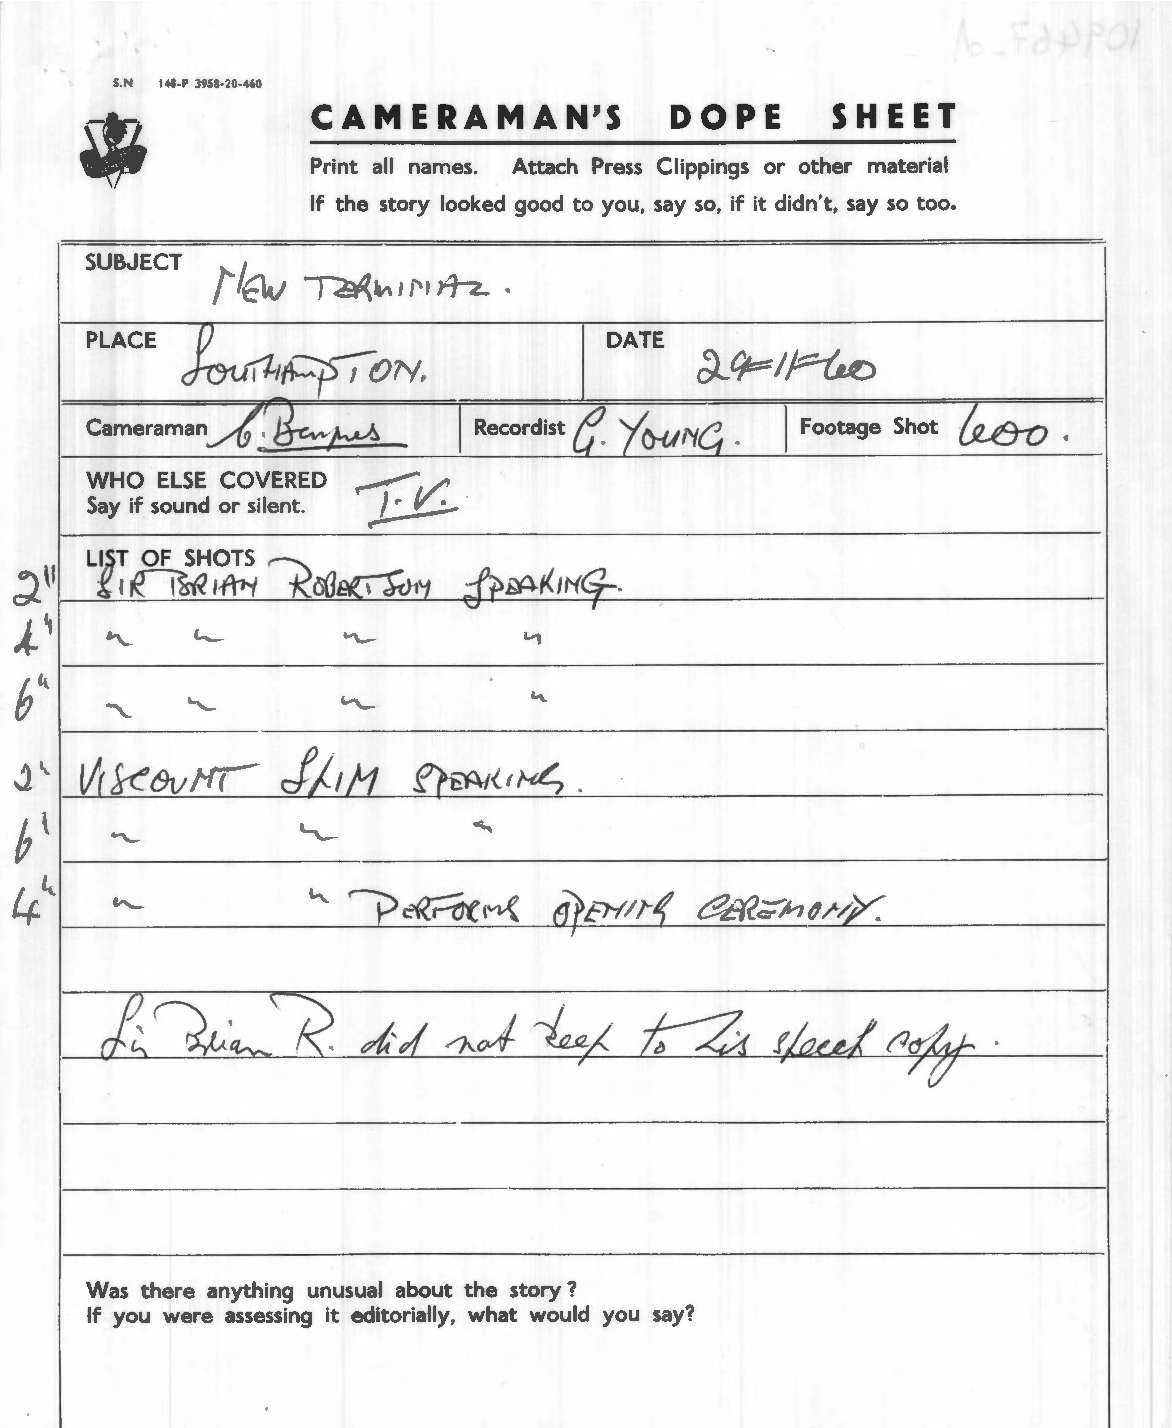 S.N 148-P 3958-20-460
CAMERAMAN'S DOPE SHEET
Print all names. Attach Press Clippings or other material
If the story looked good to you, say so, if it didn't, say so too.
SUBJECT NEW TERMINAL.
PLACE SOUTHAMPTON. DATE 29-11-60
Cameraman C. Recordist G. YOUNG. Footage Shot 600.
WHO ELSE COVERED T.V.
Say if sound or silent.
LIST OF SHOTS
2" SIR BRIAN ROBERTSON SPEAKING.
4" " " " "
6" " " " "
2" VISCOUNT SLIM SPEAKING.
6" " " "
4" " " PERFORMS OPENING CEREMONY.
Sir Brian R. did not keep to his speech copy.
Was there anything unusual about the story?
If you were assessing it editorially, what would you say?